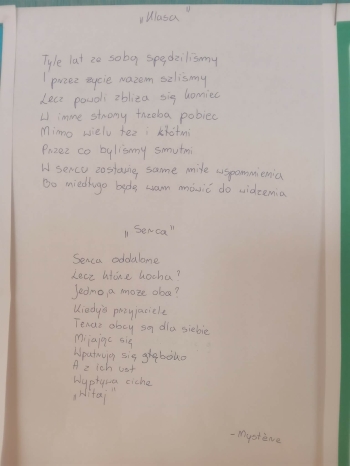 „Klasa"
Tyle lat ze sobą spędziliśmy
I przez życie razem szliśmy
Lecz powoli zbliża się koniec
W inne strony trzeba pobiec
Mimo wielu łez i kłótni
Przez co byliśmy smutni
W sercu zostawię same miłe wspomnienia
Bo niedługo będę wam mówić do widzenia
„Serca"
Serca oddalone
Lecz które kocha?
Jedno, a może oba?
Kiedyś przyjaciele
Teraz obcy są dla siebie
Mijając się
Wpatrują się głęboko
A z ich ust
Wypływa ciche
„Witaj"
-Mystène